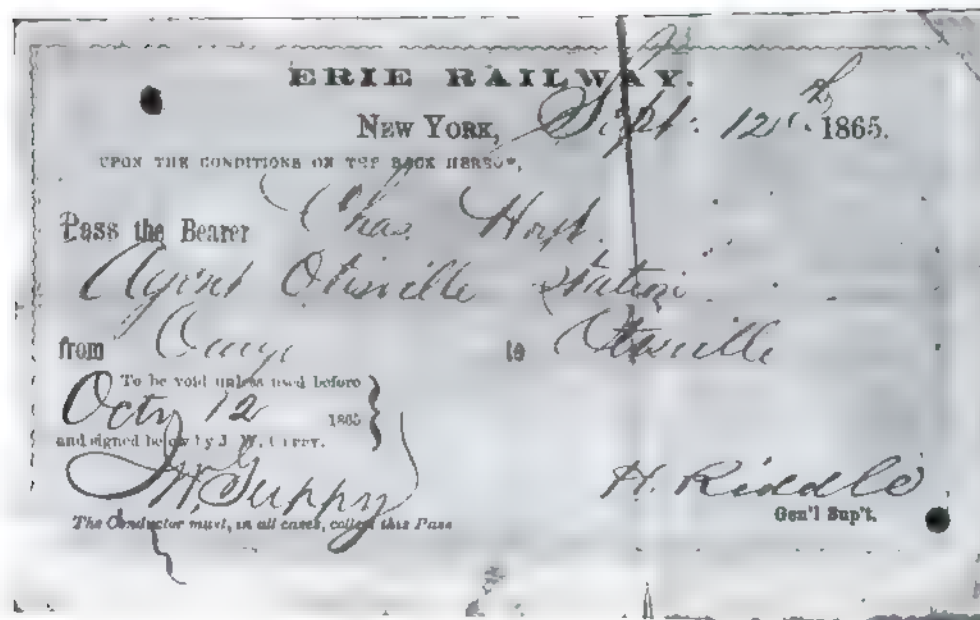 ERIE RAILWAY.
NEW YORK, Sept. 12th 1865.
UPON THE CONDITIONS ON THE BACK HEREOF,
Pass the Bearer Chas.
Agent Otisville Station
from to Otisville
To be void unless used before
Oct 12 1865
and signed below by J. W. GUPPY.
J W Guppy
H. Riddle
Gen'l Sup't.
The Conductor must, in all cases, collect this Pass